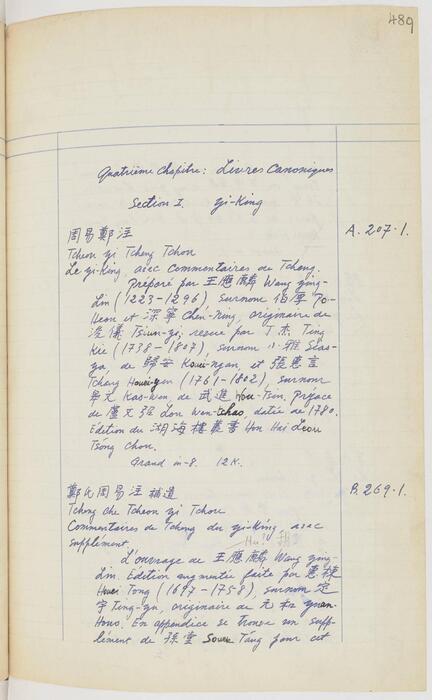 489
Quatrième Chapitre: Livres Canoniques
Section I. Yi-King
周易鄭注 A. 207.1.
Tcheou yi Tcheng Tchou
Le yi-king avec Commentaires de Tcheng.
Préparé par 王應麟 Wang ying-
Lin (1223-1296), surnom 伯厚 Po-
Heou et 深寧 Chen-Ning, originaire de
浚儀 Tsiun-yi, revue par 丁杰 Ting
Kie (1738-1807), surnom 小雅 Siao-
ya, de 歸安 Kouei-ngan, et 張惠言
Tchang Houei-yen (1761-1802), surnom
皋文 Kao-wen, de 武進 Wou-Tsin. Préface
de 盧文弨 Lou Wen-tchao, datée de 1780.
Edition du 湖海樓叢書 Hou Hai Leou
Tsong chou.
Grand in-8. 12 K.
鄭氏周易注 補遺 B. 269.1.
Tcheng che Tcheou yi Tchou
Commentaires de Tcheng du yi-king, avec
supplément
L'ouvrage de 王應麟 Wang ying-
Lin. Edition augmentée faite par 惠棟
Houei Tong (1697-1758), surnom 定
宇 Ting-yu, originaire de 元和 yuan-
Houo. En appendice se trouve un supp-
lément de 孫堂 Souen Tang pour cet